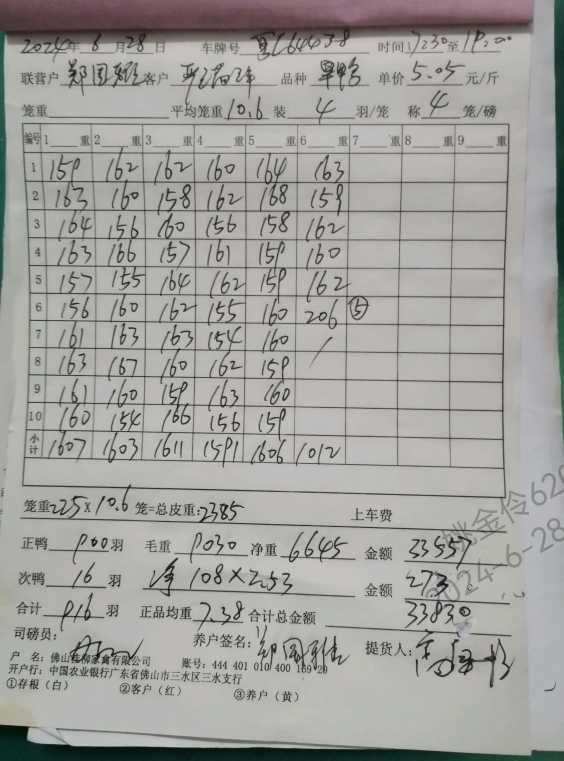 2024年 6 月 28 日 车牌号 时间 17:30 至 19:00
联营户 郑国雄 客户 品种 单价 5.05 元/斤
笼重 平均笼重 10.6 装 4 羽/笼 称 4 笼/磅
编号 1 重 2 重 3 重 4 重 5 重 6 重 7 重 8 重 9 重
1 159 162 162 160 164 163
2 163 160 158 162 168 159
3 164 156 160 156 158 162
4 163 166 157 161 159 160
5 157 155 164 162 159 162
6 156 160 162 155 160 206 ⑤
7 161 163 163 154 160 /
8 163 167 160 162 159
9 161 160 159 163 160
10 160 154 166 156 159
小计 1607 1603 1611 1591 1606 1012
笼重: 225 × 10.6 笼=总皮重: 2385 上车费
正鸭 900 羽 毛重 9030 净重 6645 金额 33557
次鸭 16 羽 净 108×2.53 金额 273
合计 916 羽 正品均重 7.38 合计总金额 33830
司磅员: 养户签名: 郑国雄 提货人:
户 名: 佛山桂柳家禽有限公司 账号: 444 401 010 400 159 29
开户行: 中国农业银行广东省佛山市三水区三水支行
①存根（白） ②客户（红） ③养户（黄）
2024-6-28